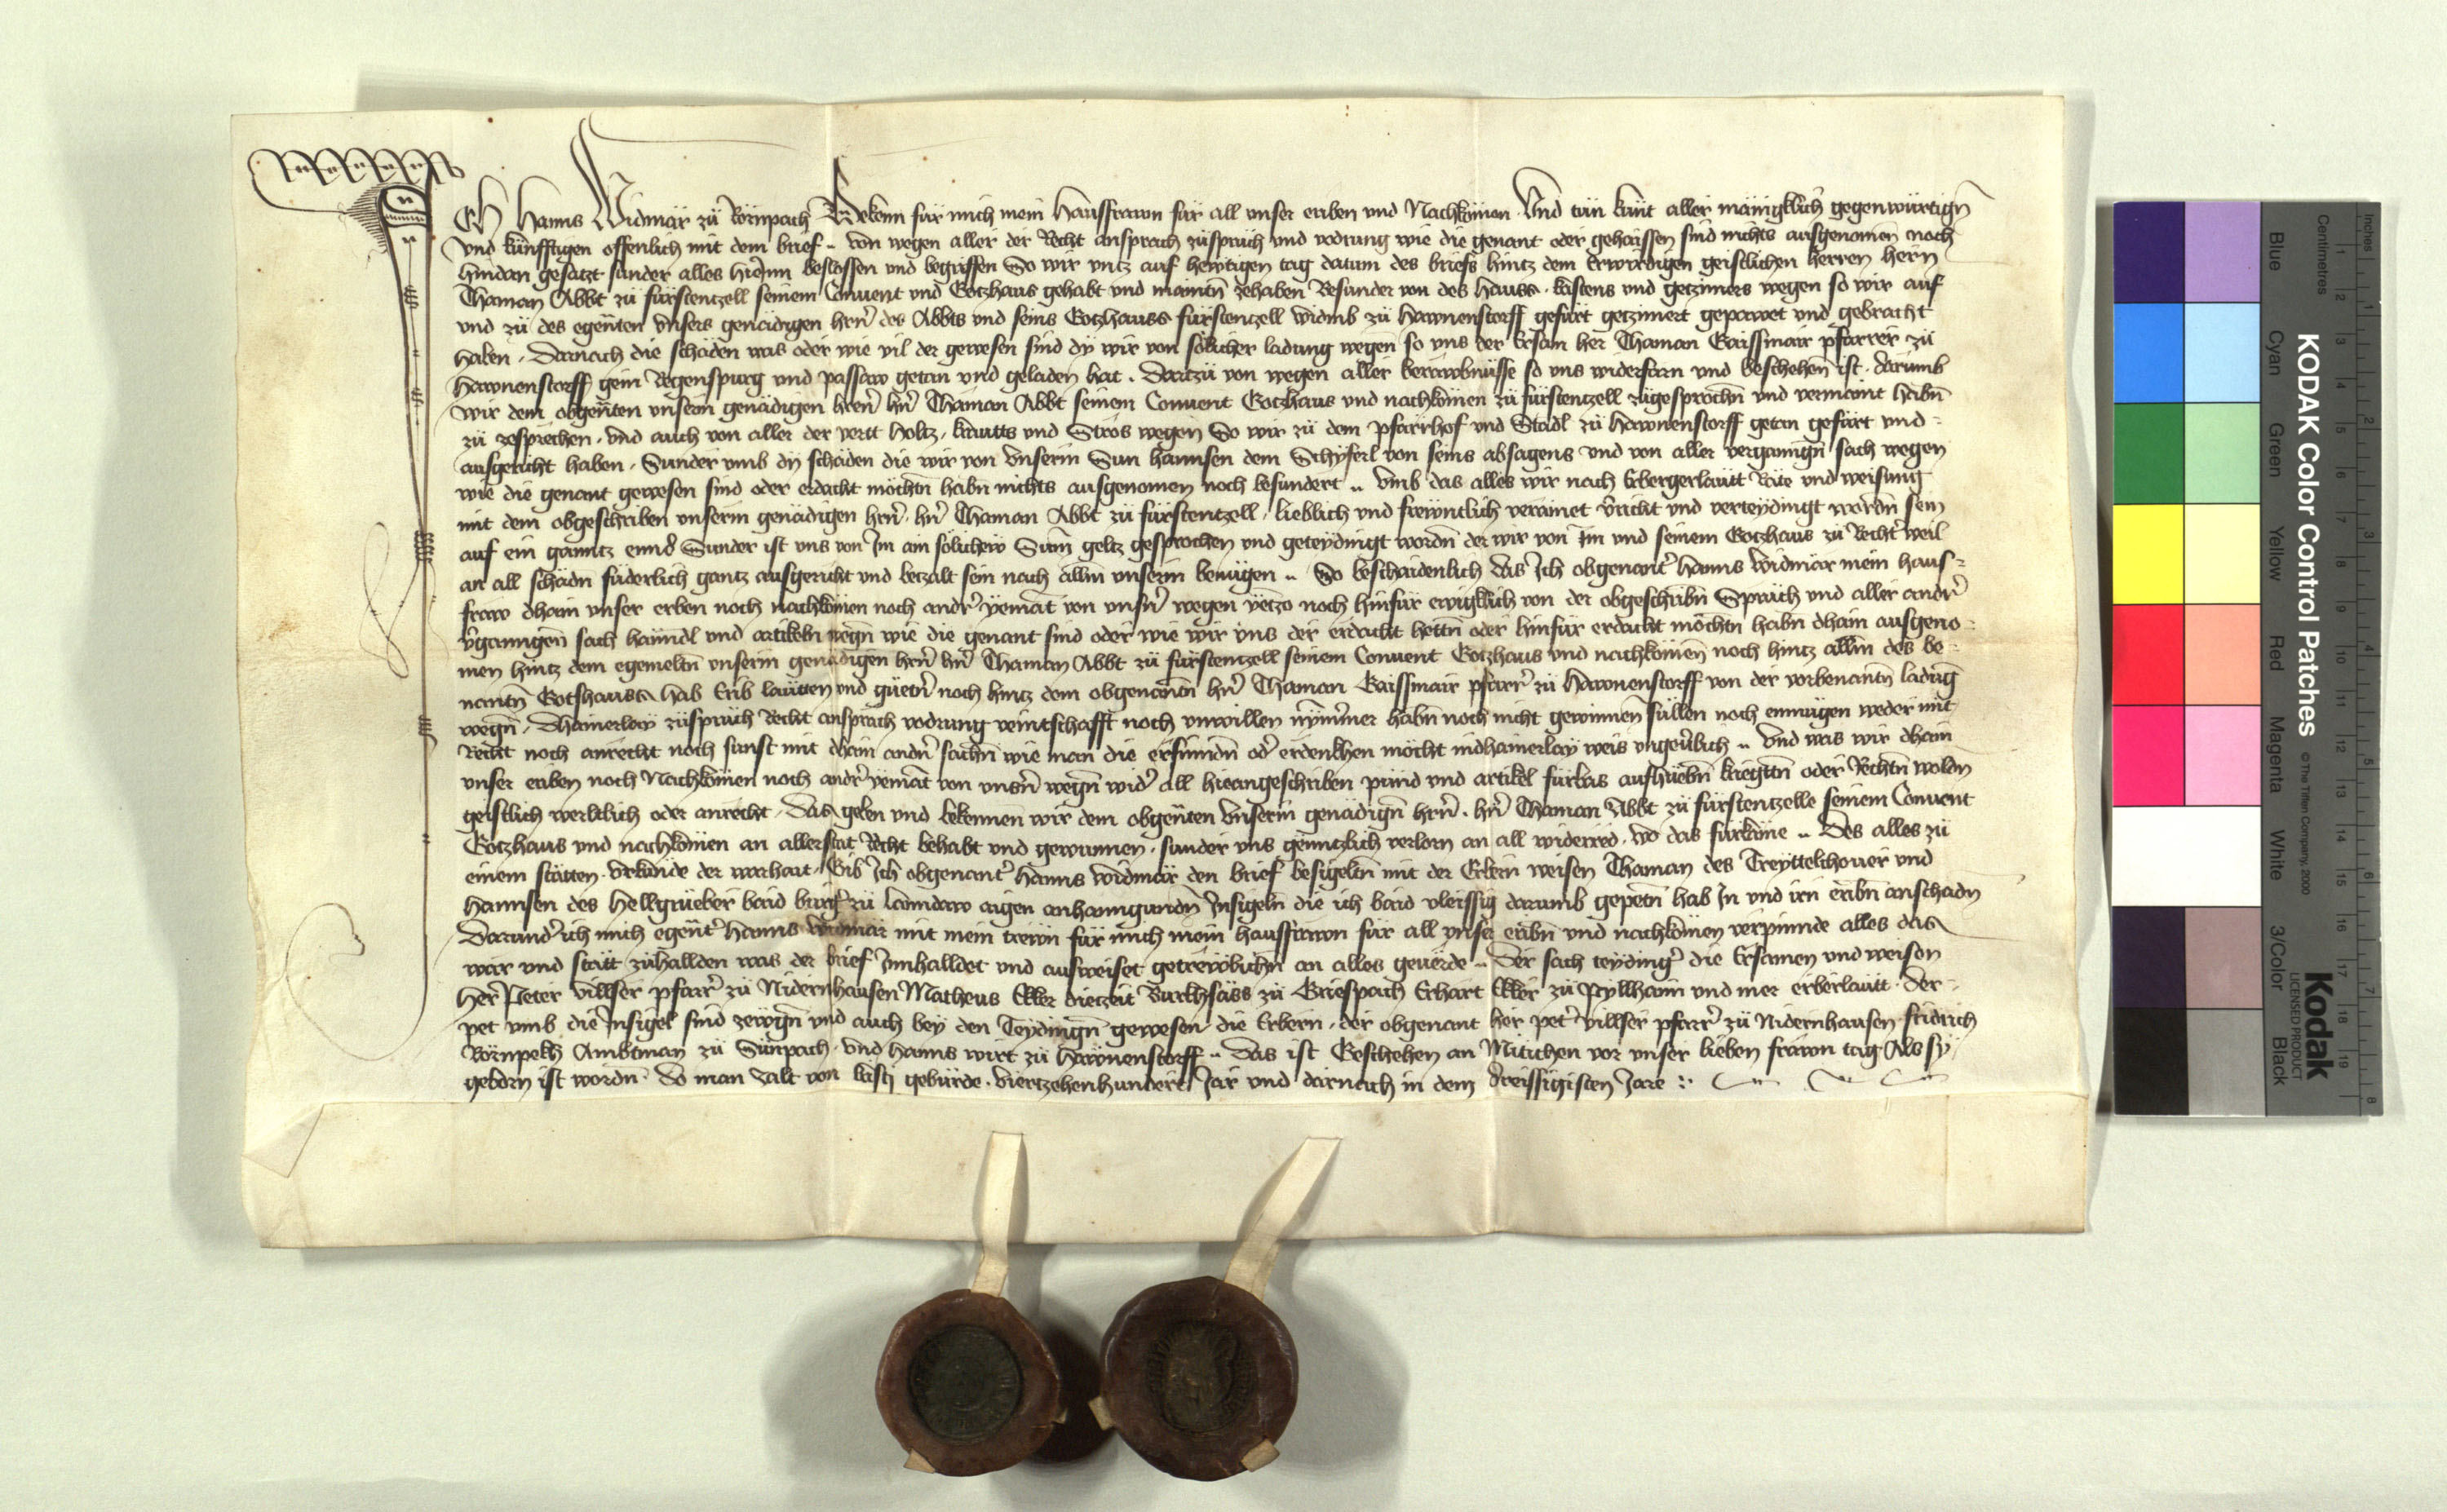 Ich Hanns Widmär zü Rörnpach Bekenn für mich mein Haüssfrawn für all vnser eriben vnd Nachkömen Vnd tün künt aller mänigklich gegenwürtign
vnd künfftigen offenlich mit dem brief von wegen aller der Recht ansprach züsprüch vnd vodrung wie die genant oder gehaissen sind nichts ausgenomen noch
hindan gesatzt sunder alles hierinn beslossen vnd begriffen So wir vntz auf hewtigen tag datum des briefs hintz dem Erwirdigen geistlichen herren hern
Thaman Abbt zü fürstentzell seinem Conuent vnd Gotzhaus gehabt vnd mainten zehaben Besunder von des hauss kastens vnd getzimers wegen so wir auf
vnd zü des egenten vnsers genädigen hrn des Abbts vnd seins Gotzhauss fürstentzell widmb zü Hawnenstorff gefürt getzimert gepawet vnd gebracht
haben Darnach die schäden was oder wie vil der gewesen sind dy wir von sölicher ladung wegen so vns der Ersam her Thaman Gaissmair pfarrer zü
Hawnenstorff gein Regenspurg vnd passaw getan vnd geladen hat Dartzü von wegen aller berawbnüsse so vns widerfarn vnd beschehen ist darumb
wir dem obgenten vnserm genädigen hren hn Thaman Abbt seinem Conuent Gotzhaus vnd nachkömen zü fürstentzell zügesprochn vnd vermaint habn
zü zesprechen vnd auch von aller der vertt holtz krawtts vnd Stros wegen So wir zü dem pfarrhof vnd Stadl zü Hawnenstorff getan gefürt vnd
ausgericht haben Sunder vmb dy schäden die wir von vnserm Sun hannsen dem Schyferl von seins absagens vnd von aller vergangn sach wegen
wie die genant gewesen sind oder erdacht möchtn habn nichts ausgenomen noch besundert vmb das alles wir nach Erbergerläutt Räte vnd weisung
mit dem obgeschriben vnserm genädigen hrn hn Thaman Abbt zü fürstentzell lieblich vnd frewntlich verainet vricht vnd verteydingt wordn sein
auf ein ganntz ennd Sunder ist vns von Im ain sölichew Sum geltz gesprochen vnd geteydingt wordn der wir von Im vnd seinem Gotzhaus zü Rechter weil
an all schädn füderlich gantz ausgericht vnd betzalt sein nach allm vnserm benügen So beschaidenlich das Ich obgenanter Hanns Widmär mein haus-
fraw dhain vnser erben noch nachkömen noch andr yemat von vnsn wegen yetzo noch hinfür ewigklich von der obgeschribn Sprüch vnd aller andr
vgangen sach händl vnd artikeln wegn wie die genant sind oder wie wir vns der erdacht hettn oder hinfür erdacht möchtn habn dhain ausgeno-
men hintz dem egemeltn vnserm genädigen hrn hn Thaman Abbt zü fürstentzell seinem Conuent Gotzhaus vnd nachkömen noch hintz allm des be-
nantn Gotshauss hab Erib läutten vnd güetrn noch hintz dem obgenantn hn Thaman Gaissmair pfarrer zü Hawnenstorff von der vorbenantn ladug
wegn Dhainerlay züsprüch Recht ansprach vodrung veintschafft noch vnwillen nymmer habn noch nicht gewinnen süllen noch enmügen weder mit
Recht noch anrecht noch sunst mit dhain andn sachn wie man die erfinndn oder erdenkhen möcht indhainerlay weis vngeuerlich Vnd was wir dhain
vnser eriben noch Nachkömen noch andr yemat von vnsn wegn wider all hieangeschriben pünd vnd artikel fürbas aufhuebn kriegttn oder Rechtn woldn
geistlich werltlich oder anrecht Das geben vnd bekennen wir dem obgenten vnserm genädign hrn hn Thaman Abbt zü fürstentzelle seinem Conuent
Gotzhaus vnd nachkömen an allerstat Recht behabt vnd gewunnen sunder vns gänntzlich verlorn an all widerred wo das fürkäme Des alles zü
einem stätten vrkünde der warhait Gib Ich obgenanter Hanns Widmär den brief besigeltn mit der Erbern weisen Thaman des Treyttelchouer vnd
Hannsen des Hellgrueber baid burger zü Lanndaw aigen anhanngundn Insigeln die ich baid vleissig darumb gepetn hab In vnd irn eribn anschadn
Darunder ich mich egenter Hanns Widmär mit mein trewn für mich mein haussfrawn für all vnser eribn vnd nachkömen verpinnde alles das
war vnd stätt zühallden was der brief Innhalldet vnd ausweiset getrewlichn an alles geuerde Der sach teydinger die Ersamen vnd weisen
Her Peter villser pfarrer zü Nidernhausen Matheus Eller dietzeit Burkhsäss zü Griespach Erhart Eller zü pryllhaim vnd mer erberläutt Der
pet vmb die Insigel sind zewgn vnd auch bey den Teydingn gewesen die Erbern der obgenant her peter villser pfarrer zü Nidernhausen fridrich
Rörnpekh Ambtman zü Sünpach vnd Hanns wirt zü Hawnenstorff Das ist Geschehen an Mitichen vor vnser lieben frawn tag Als sy
geborn ist wordn Do man zalt von kristi gebürde viertzehenhundert Jar vnd darnach in dem dreissigisten Jare
KODAK Color Control Patches © The Tiffen Company, 2000
Kodak LICENSED PRODUCT
Blue Cyan Green Yellow Red Magenta White 3/Color Black
Inches 1 2 3 4 5 6 7 8
Centimetres 1 2 3 4 5 6 7 8 9 10 11 12 13 14 15 16 17 18 19